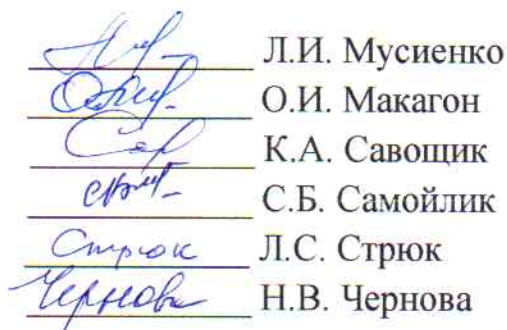 Л.И. Мусиенко
О.И. Макагон
К.А. Савощик
С.Б. Самойлик
Стрюк Л.С. Стрюк
Чернова Н.В. Чернова